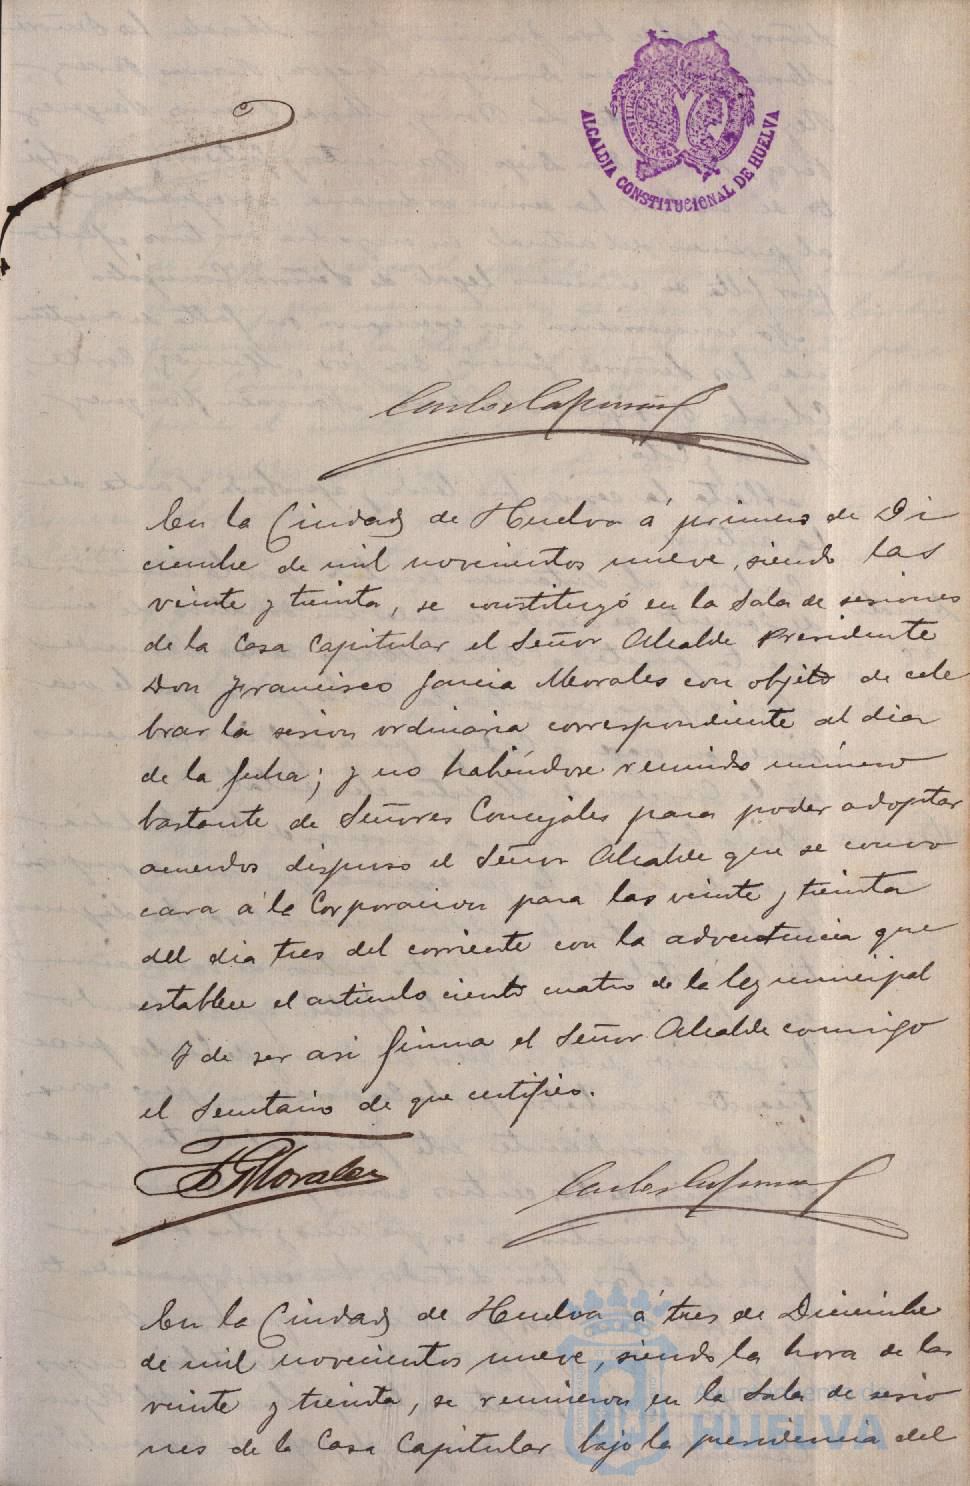 ALCALDIA CONSTITUCIONAL DE HUELVA
En la Ciudad de Huelva á primero de Di
ciembre de mil novecientos nueve, siendo las
veinte y treinta, se constituyó en la Sala de sesiones
de la Casa Capitular el Señor Alcalde Presidente
Don Francisco Garcia Morales con objeto de cele
brar la sesion ordinaria correspondiente al dia
de la fecha; y no habiéndose reunido número
bastante de Señores Concejales para poder adoptar
acuerdos dispuso el Señor Alcalde que se convo
cara á la Corporacion para las veinte y treinta
del dia tres del corriente con la advertencia que
establece el articulo ciento cuatro de la ley municipal
Y de ser asi firma el Señor Alcalde conmigo
el Secretario de que certifico.
F G Morales
En la Ciudad de Huelva á tres de Diciembre
de mil novecientos nueve, siendo la hora de las
veinte y treinta, se reunieron en la Sala de sesio
nes de la Casa Capitular bajo la presidencia del
Ayuntamiento de
HUELVA